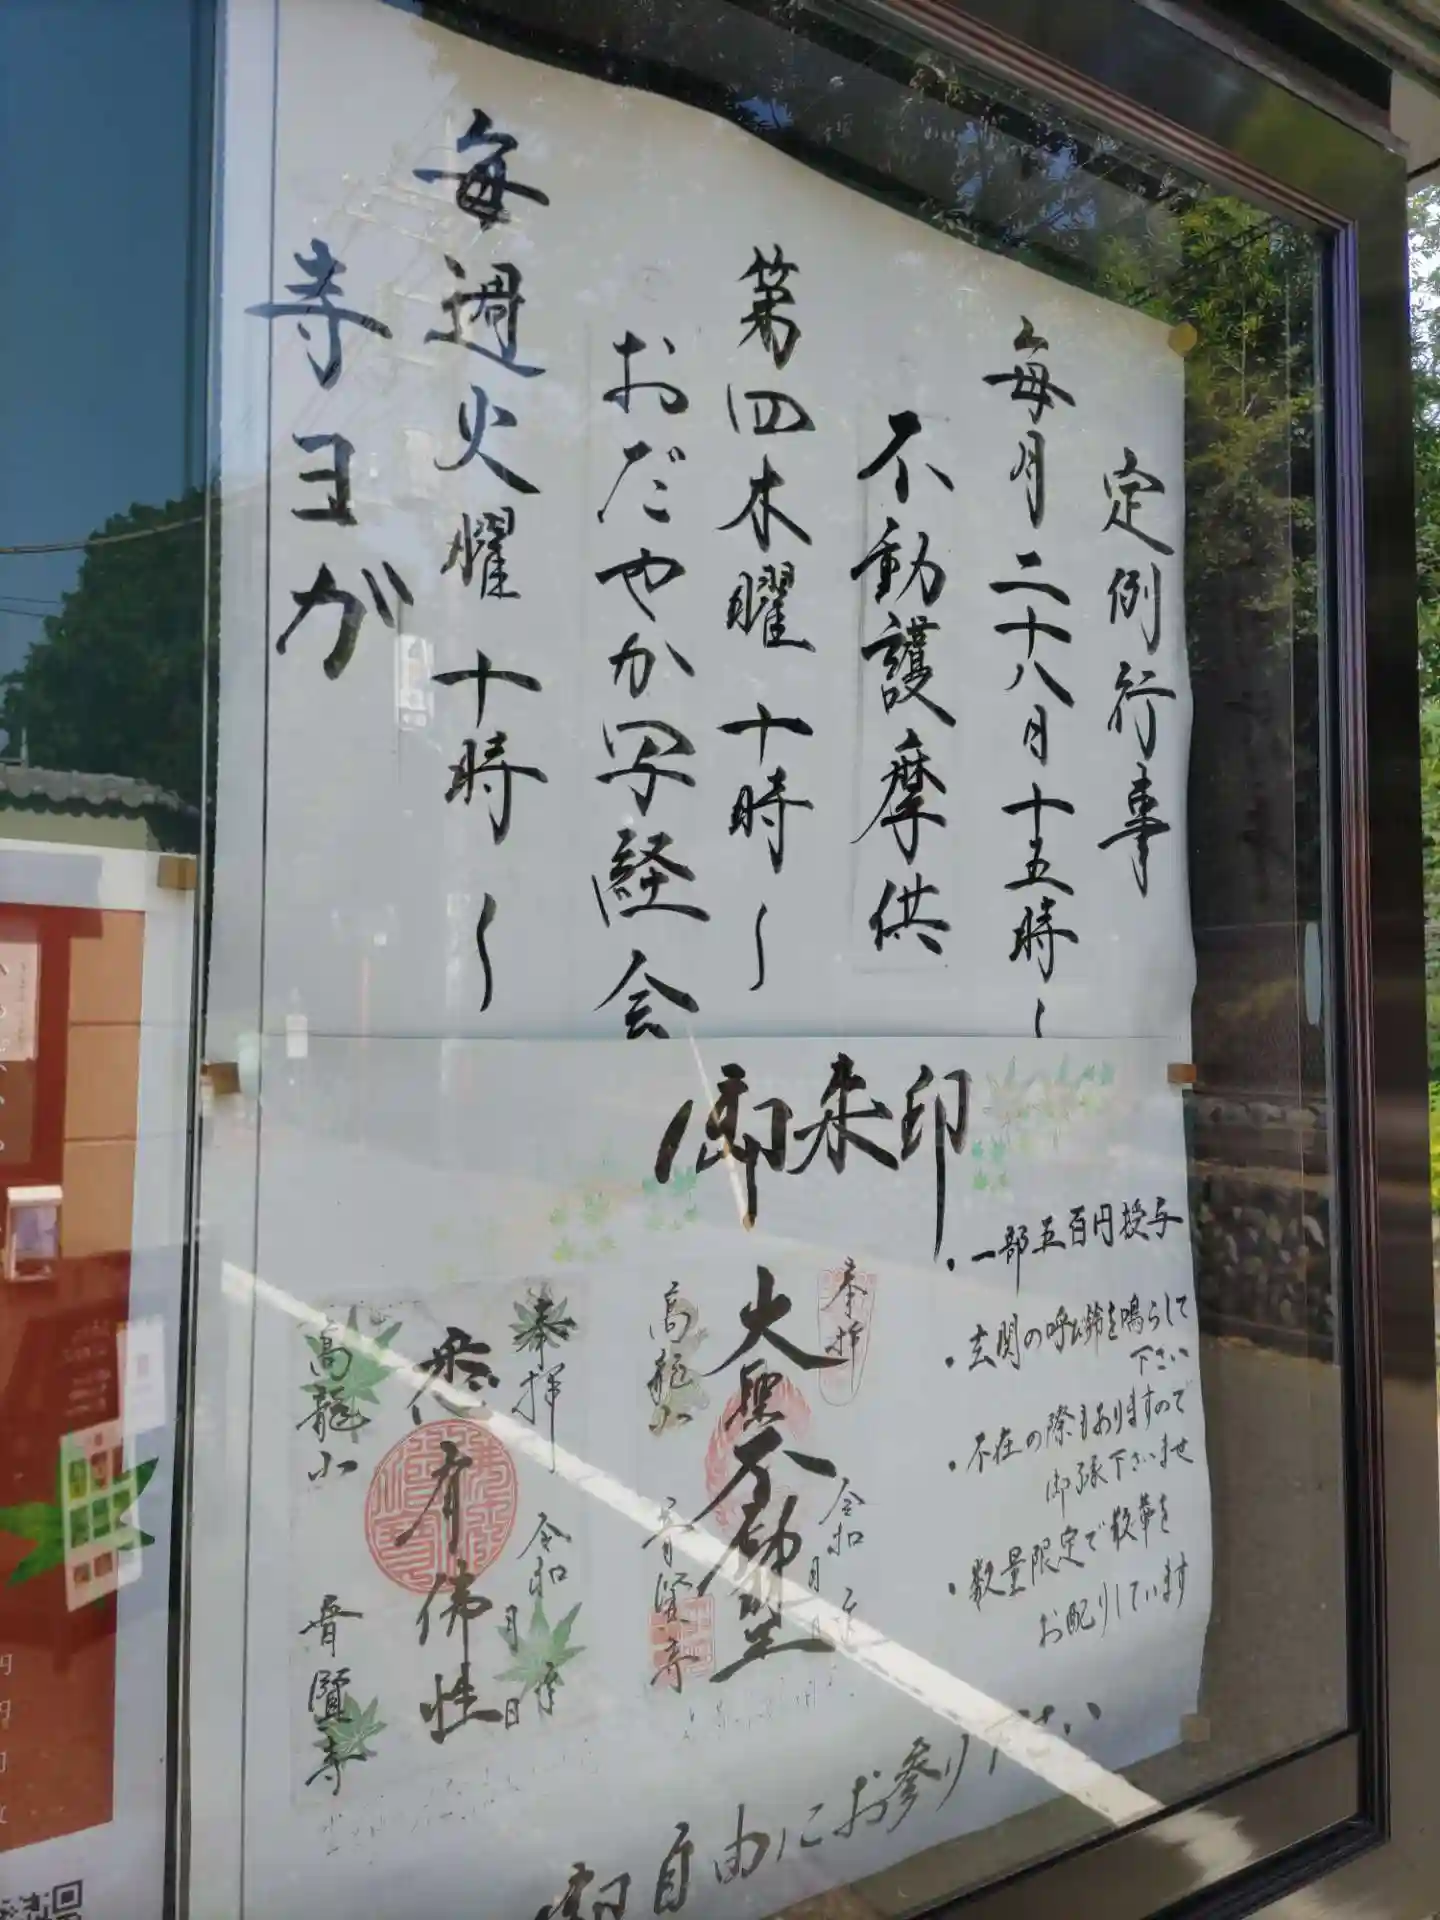 定例行事
毎月二十八日 十五時〜
不動護摩供
第四木曜 十時〜
おだやか写経会
毎週火曜 十時〜
寺ヨガ
御朱印
・一部五百円授与
・玄関の呼び鈴を鳴らして
下さい
・不在の際もありますので
御了承下さいませ
・数量限定で散華を
お配りしています
奉拝
令和 年 月 日
大聖不動明王
高龍山
普賢寺
奉拝
令和 年 月 日
悉有佛性
高龍山
普賢寺
御自由にお参り下さい